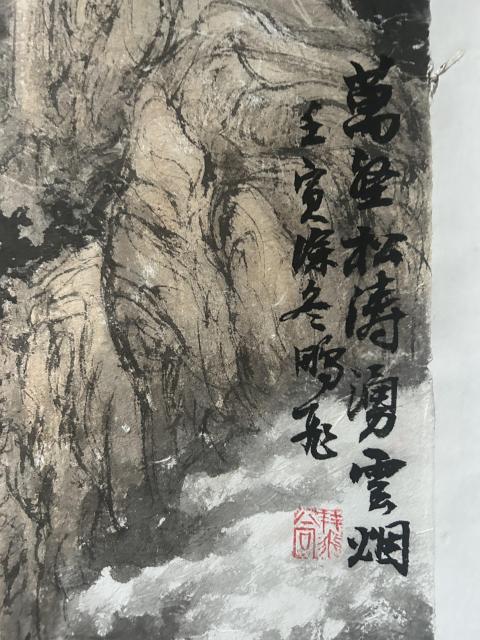 萬壑松涛湧雲烟
壬寅深冬鵬飛